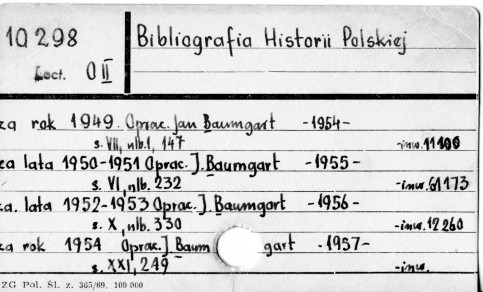 10298
Bibliografia Historii Polskiej
Lect. O II
za rok 1949. Oprac. Jan Baumgart -1954-
s. VII, nlb.1, 147 -inw. 11106
za lata 1950-1951 Oprac. J. Baumgart -1955-
s. VI, nlb. 232 -inw. 61173
za. lata 1952-1953 Oprac. J. Baumgart -1956-
s. X, nlb. 330 -inw. 12260
za rok 1954 Oprac. J. Baumgart -1957-
s. XXI, 249 -inw.
ZG Pol. Śl. z. 365/69. 100 000